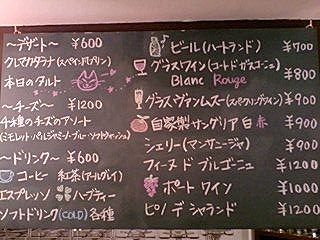 ～デザート～ ¥600
クレマカタラナ(スペイン風プリン)
本日のタルト
～チーズ～ ¥1200
4種のチーズのアソート
(ミモレット・パルジャミーノ・ブルー・ソフトウォッシュ)
～ドリンク～ ¥600
コーヒー 紅茶(アールグレイ)
エスプレッソ ハーブティー
ソフトドリンク(COLD)各種
ビール(ハートランド) ¥700
グラスワイン(コートドガスコーニュ)
Blanc Rouge ¥800
グラスヴァンムスー(スパークリングワイン) ¥900
自家製サングリア 白 赤 ¥900
シェリー(マンサニージャ) ¥900
フィーヌ ド ブルゴーニュ ¥1200
ポートワイン ¥1000
ピノ デ シャランド ¥1200